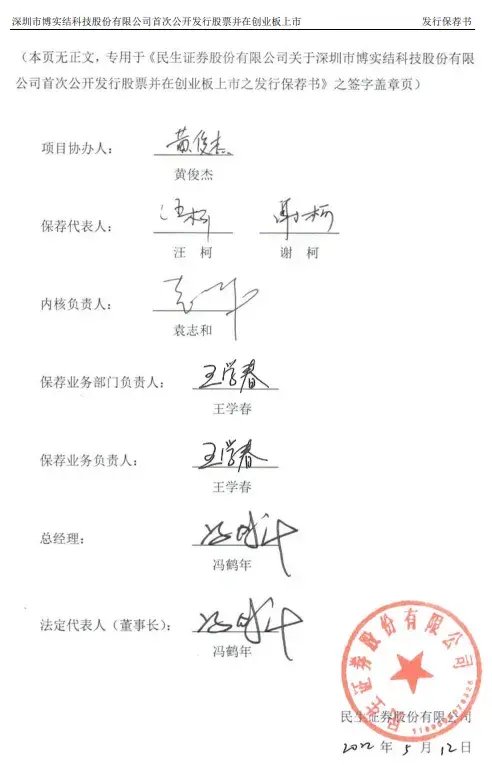 深圳市博实结科技股份有限公司首次公开发行股票并在创业板上市 发行保荐书
（本页无正文，专用于《民生证券股份有限公司关于深圳市博实结科技股份有限
公司首次公开发行股票并在创业板上市之发行保荐书》之签字盖章页）
项目协办人： 黄俊杰
黄俊杰
保荐代表人： 汪柯 谢柯
汪 柯 谢 柯
内核负责人：
袁志和
保荐业务部门负责人： 王学春
王学春
保荐业务负责人： 王学春
王学春
总经理：
冯鹤年
法定代表人（董事长）：
冯鹤年
民生证券股份有限公司
民生证券股份有限公司
2022 年 5 月 12 日